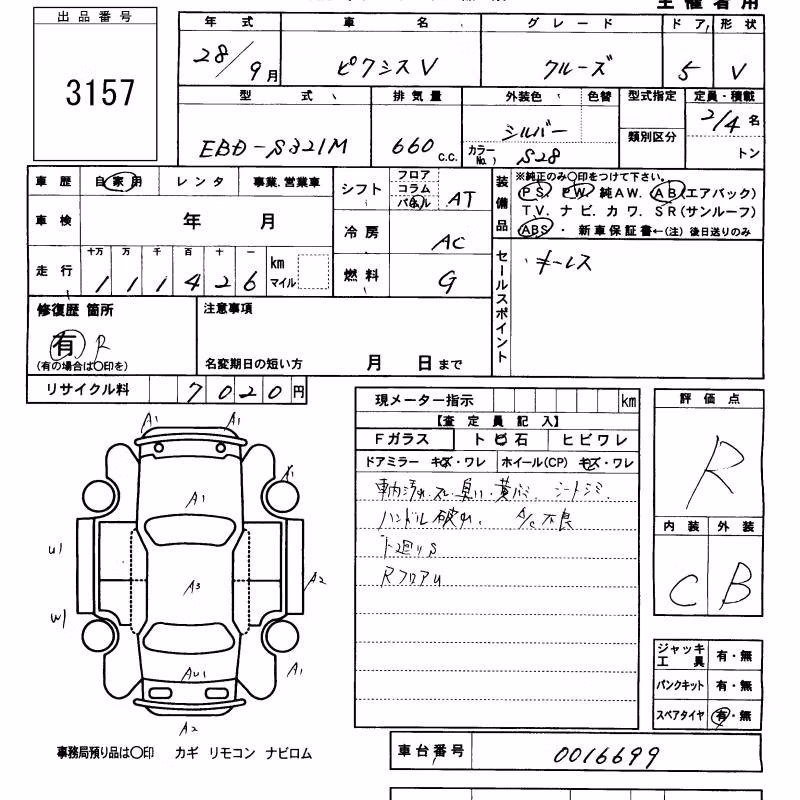 主催者用
出品番号
3157
年式 車名 グレード ドア 形状
28/9月 ピクシスV クルーズ 5 V
型式 排気量 外装色 色替 型式指定 定員・積載
EBD-S321M 660 c.c. シルバー 類別区分 2/4名
カラーNo. S28 トン
車歴 自家用 レンタ 事業.営業車
シフト フロア コラム パネル AT
車検 年 月
冷房 AC
走行 十万 万 千 百 十 一
1 1 1 4 2 6 km マイル
燃料 G
装備品
※純正のみ○印をつけて下さい。
PS. PW. 純AW. AB(エアバック)
TV. ナビ. カワ. SR(サンルーフ)
ABS・ 新車保証書←(注) 後日送りのみ
セールスポイント
・キーレス
修復歴 箇所
有 R
(有の場合は○印を)
注意事項
名変期日の短い方 月 日まで
リサイクル料 7020円
現メーター指示 km
【査定員記入】
Fガラス トビ石 ヒビワレ
ドアミラー キズ・ワレ ホイール(CP) キズ・ワレ
車内汚れ・スレ・臭い・黄バミ、シートシミ、
ハンドル破れ、 A/C不良
下廻りS
RフロアU
評価点
R
内装 外装
C B
A1 A1
A1
A1
U1
A3
A2
W1
AU1
A1
A2
ジャッキ工具 有・無
パンクキット 有・無
スペアタイヤ 有・無
事務局預り品は○印 カギ リモコン ナビロム
車台番号 0016699